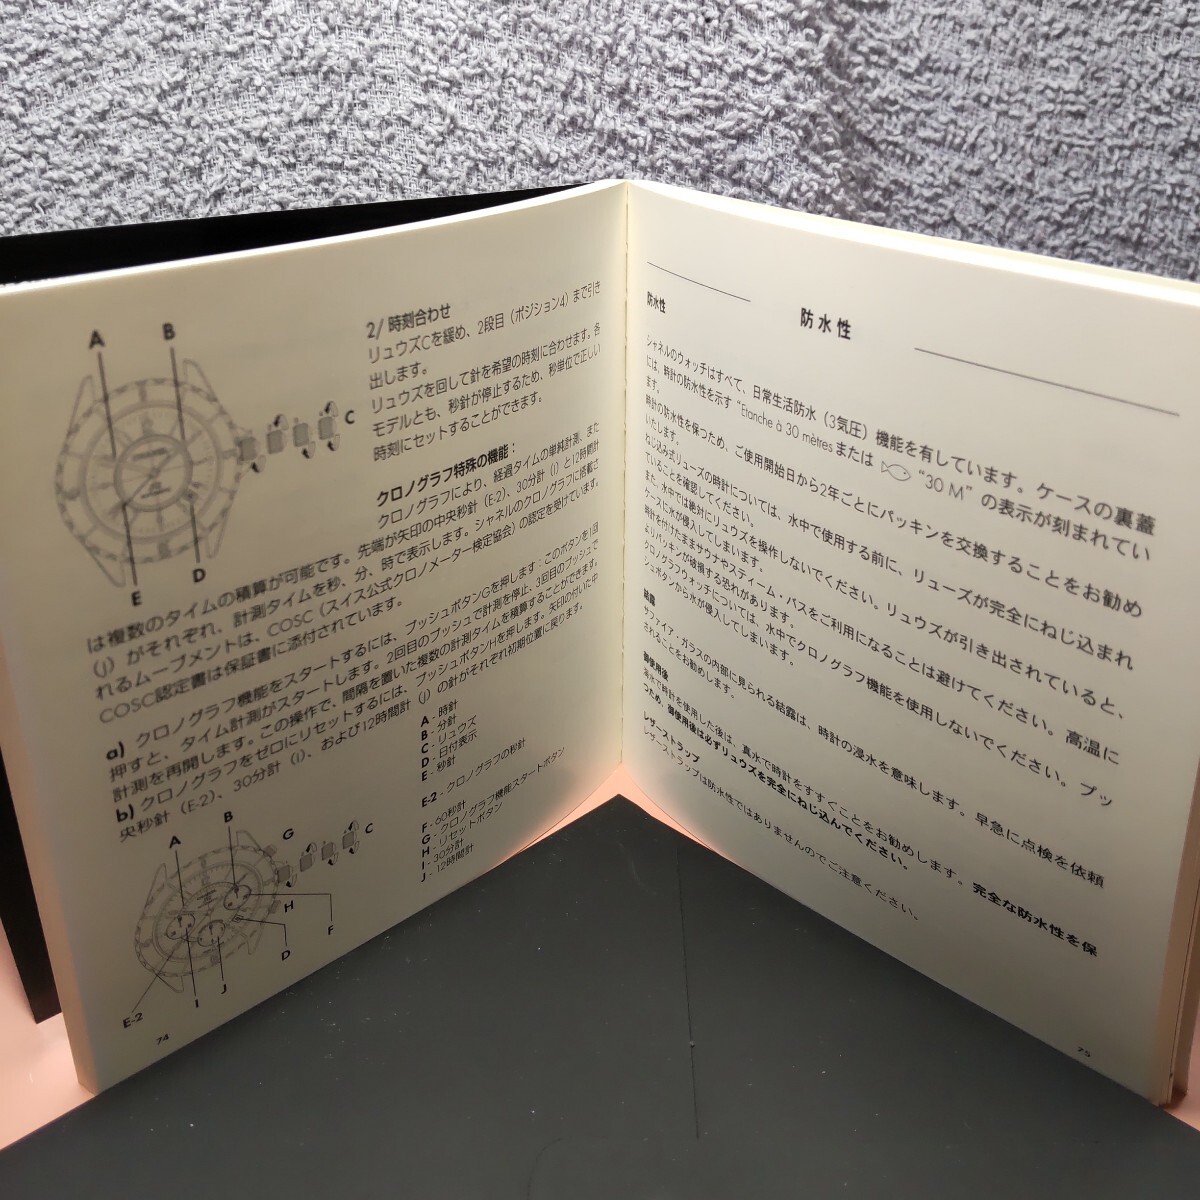 A
B
C
D
E
2/ 時刻合わせ
リュウズCを緩め、2段目（ポジション4）まで引き
出します。
リュウズを回して針を希望の時刻に合わせます。各
モデルとも、秒針が停止するため、秒単位で正しい
時刻にセットすることができます。
クロノグラフ特殊の機能：
クロノグラフにより、経過タイムの単純計測、また
は複数のタイムの積算が可能です。先端が矢印の中央秒針（E-2）、30分計（I）と12時間計
（J）がそれぞれ、計測タイムを秒、分、時で表示します。シャネルのクロノグラフに搭載さ
れるムーブメントは、COSC（スイス公式クロノメーター検定協会）の認定を受けています。
COSC認定書は保証書に添付されています。
a) クロノグラフ機能をスタートするには、プッシュボタンGを押します：このボタンを1回
押すと、タイム計測がスタートします。2回目のプッシュで計測を停止、3回目のプッシュで
計測を再開します。この操作で、間隔を置いた複数の計測タイムを積算することができます。
b) クロノグラフをゼロにリセットするには、プッシュボタンHを押します。矢印の付いた中
央秒針（E-2）、30分計（I）、および12時間計（J）の針がそれぞれ初期位置に戻ります。
A - 時針
B - 分針
C - リュウズ
D - 日付表示
E - 秒針
E-2 - クロノグラフの秒針
F - 60秒計
G - クロノグラフ機能スタートボタン
H - リセットボタン
I - 30分計
J - 12時間計
A
B
G
C
H
F
D
J
I
E-2
74
防水性
防水性
シャネルのウォッチはすべて、日常生活防水（3気圧）機能を有しています。ケースの裏蓋
には、時計の防水性を示す “Etanche à 30 mètresまたは “30 M” の表示が刻まれてい
ます。
時計の防水性を保つため、ご使用開始日から2年ごとにパッキンを交換することをお勧め
いたします。
ねじ込み式リューズの時計については、水中で使用する前に、リューズが完全にねじ込まれ
ていることを確認してください。
また、水中では絶対にリュウズを操作しないでください。リュウズが引き出されていると、
ケースに水が侵入してしまいます。
時計を付けたままサウナやスティーム・バスをご利用になることは避けてください。高温に
よりパッキンが破損する恐れがあります。
クロノグラフウォッチについては、水中でクロノグラフ機能を使用しないでください。プッ
シュボタンから水が侵入してしまいます。
結露
サファイア・ガラスの内部に見られる結露は、時計の浸水を意味します。早急に点検を依頼
されることをお勧めします。
御使用後
海水で時計を使用した後は、真水で時計をすすぐことをお勧めします。完全な防水性を保
つため、御使用後は必ずリュウズを完全にねじ込んでください。
レザーストラップ
レザーストラップは防水性ではありませんのでご注意ください。
75